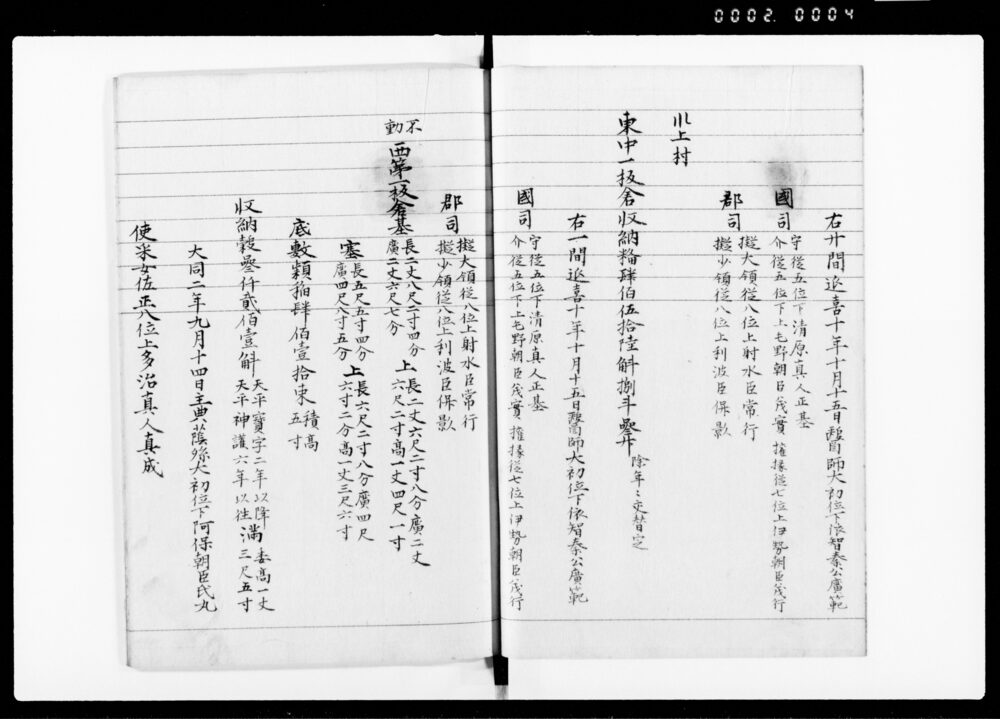 0002. 0004
右廾間延喜十年十月十五日醫師大初位下依智秦公廣範
國司
守從五位下清原真人正基
介從五位下上毛野朝臣茂實 權掾從七位上伊勢朝臣茂行
郡司
擬大領從八位上射水臣常行
擬少領從八位上利波臣保影
川上村
東中一板倉収納糒肆佰伍拾陸斛捌斗㕘升
除年〻交替定
右一間延喜十年十月十五日醫師大初位下依智秦公廣範
國司
守從五位下清原真人正基
介從五位下上毛野朝臣茂實 權掾從七位上伊勢朝臣茂行
郡司
擬大領從八位上射水臣常行
擬少領從八位上利波臣保影
不動
西第一板倉基
長二丈八尺二寸四分
廣二丈六尺七分
上
長二丈六尺二寸八分廣二丈
六尺二寸高一丈四尺一寸
塞
長五尺五寸四分
廣四尺八寸五分
上
長六尺二寸八分廣四尺
六寸二分高一丈三尺六寸
底敷穎稲肆佰壹拾束
積高
五寸
収納穀㕘仟貳佰壹斛
天平寶字二年以降
天平神護六年以往
滿
委高一丈
三尺五寸
大同二年九月十四日主典蔭孫大初位下阿保朝臣氏丸
使采女佑正八位上多治真人真成